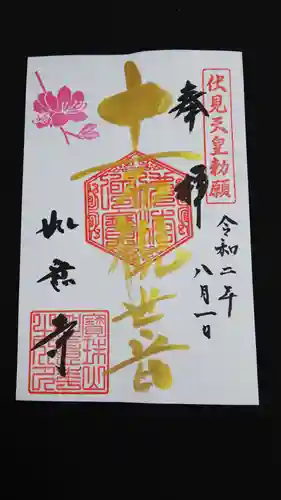 伏見天皇勅願
奉拝
令和二年
八月一日
十一面観世音
如意寺
寶珠山